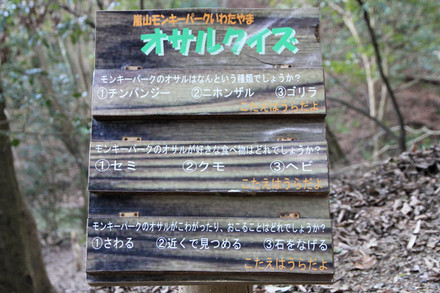 嵐山モンキーパークいわたやま
オサルクイズ
モンキーパークのオサルはなんという種類でしょうか?
①チンパンジー ②ニホンザル ③ゴリラ
こたえはうらだよ
モンキーパークのオサルが好きな食べ物はどれでしょうか?
①セミ ②クモ ③ヘビ
こたえはうらだよ
モンキーパークのオサルがこわがったり、おこることはどれでしょうか?
①さわる ②近くで見つめる ③石をなげる
こたえはうらだよ